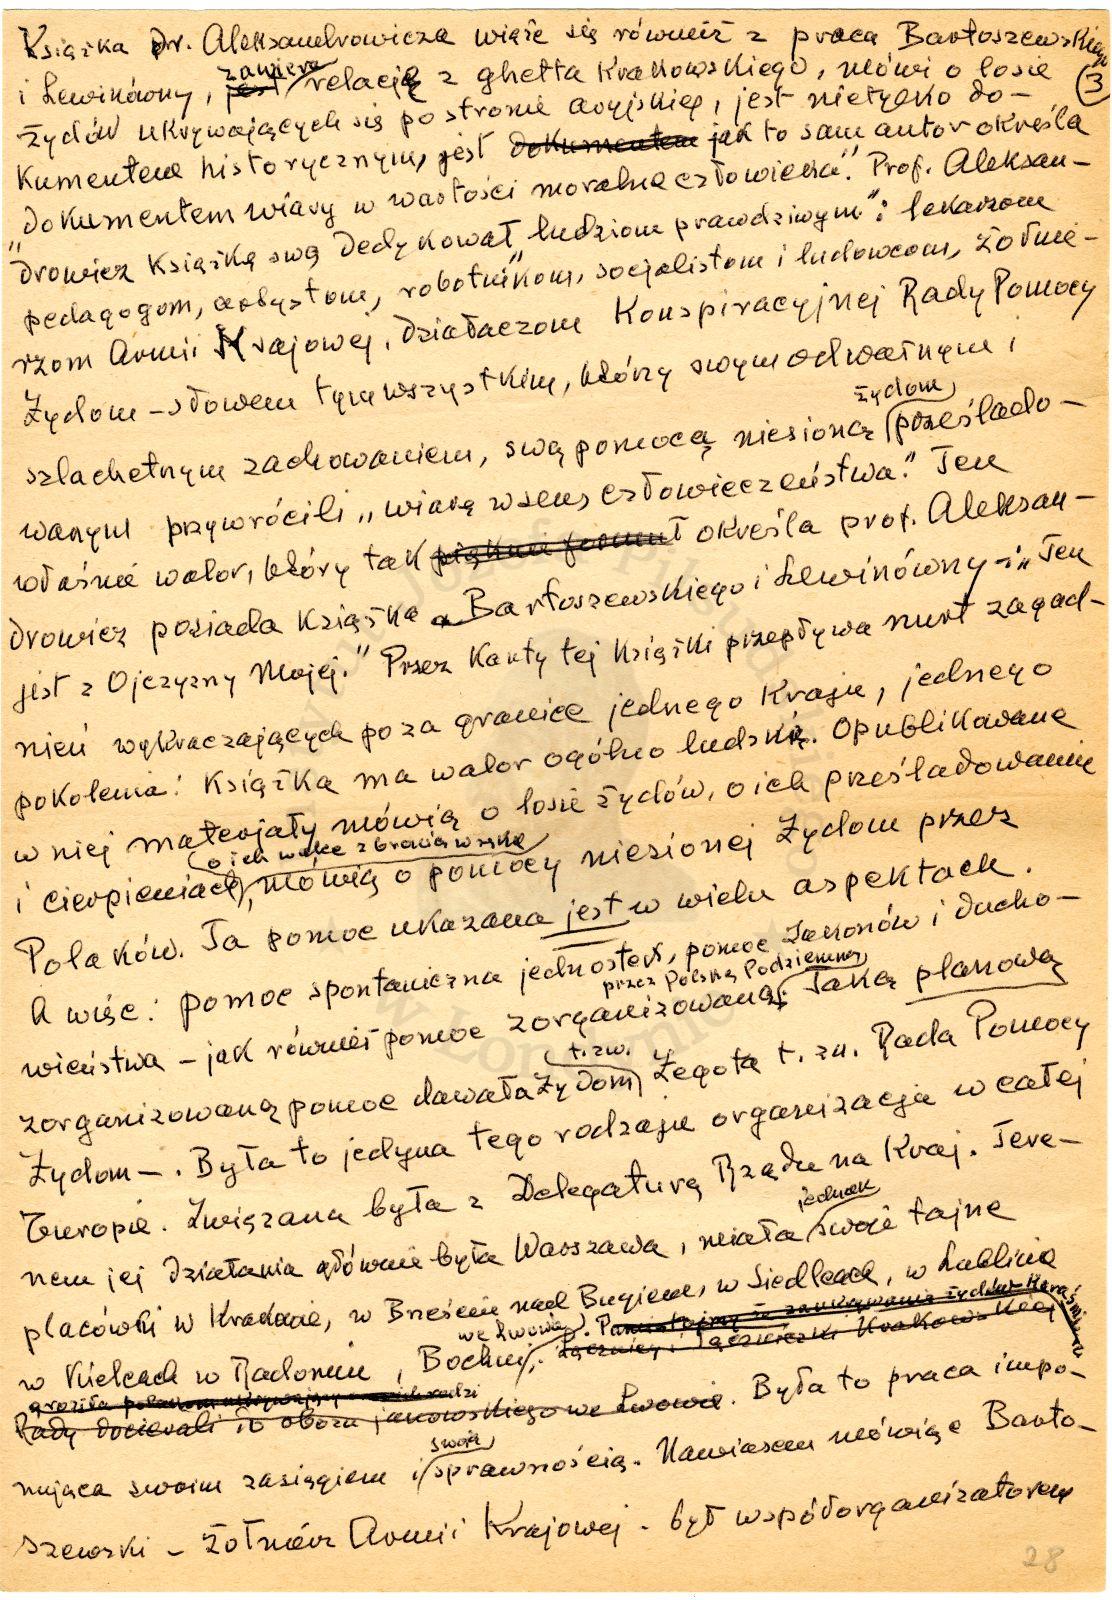 Książka Dr. Aleksandrowicza wiąże się również z pracą Bartoszewskiego
i Lewinówny, jest zawiera relację z ghetta Krakowskiego, mówi o losie
3
żydów ukrywających się po stronie aryjskiej, jest nietylko do-
kumentem historycznym, jest dokumentem jak to sam autor określa
"dokumentem wiary w wartości moralne człowieka". Prof. Aleksan-
drowicz książkę swą dedykował "ludziom prawdziwym": lekarzom
pedagogom, artystom, robotnikom, socjalistom i ludowcom, żołnie-
rzom Armii Krajowej, działaczom Konspiracyjnej Rady Pomocy
Żydom – słowem tym wszystkim, którzy swym odważnym i
szlachetnym zachowaniem, swą pomocą niesioną żydom prześlado-
wanym przywrócili "wiarę w sens człowieczeństwa". Ten
właśnie walor, który tak określa prof. Aleksan-
drowicz posiada książka Bartoszewskiego i Lewinówny – "Ten
jest z Ojczyzny Mojej." Przez karty tej książki przepływa nurt zagad-
nień wykraczających poza granice jednego kraju, jednego
pokolenia: książka ma walor ogólno ludzki. Opublikowane
w niej materjały mówią o losie żydów, o ich prześladowaniu
i cierpieniach, o ich walce z bronią w ręku mówią o pomocy niesionej Żydom przez
Polaków. Ta pomoc ukazana jest w wielu aspektach.
A więc: pomoc spontaniczna jednostek, pomoc zakonów i ducho-
wieństwa – jak również pomoc zorganizowaną przez Polskę Podziemną. Taką planową
zorganizowaną pomoc dawała Żydom t.zw. Żegota t. zn. Rada Pomocy
Żydom –. Była to jedyna tego rodzaju organizacja w całej
Europie. Związana była z Delegaturą Rządu na Kraj. Tere-
nem jej działania głównie była Warszawa, miała jednak swoje tajne
placówki w Krakowie, w Brześciu nad Bugiem, w Siedlcach, w Lublinie
w Kielcach w Radomiu, Bochni, we Lwowie. Pamiętajmy że za ukrywanie żydów kara śmierci
Łącznicy i łączniczki Krakowskiej
groziła polakom
Rady docierali do obozu janowskiego we Lwowie. Była to praca impo-
nująca swoim zasięgiem i swoją sprawnością. Nawiasem mówiąc Barto-
szewski – żołnierz Armii Krajowej – był współorganizatorem
28